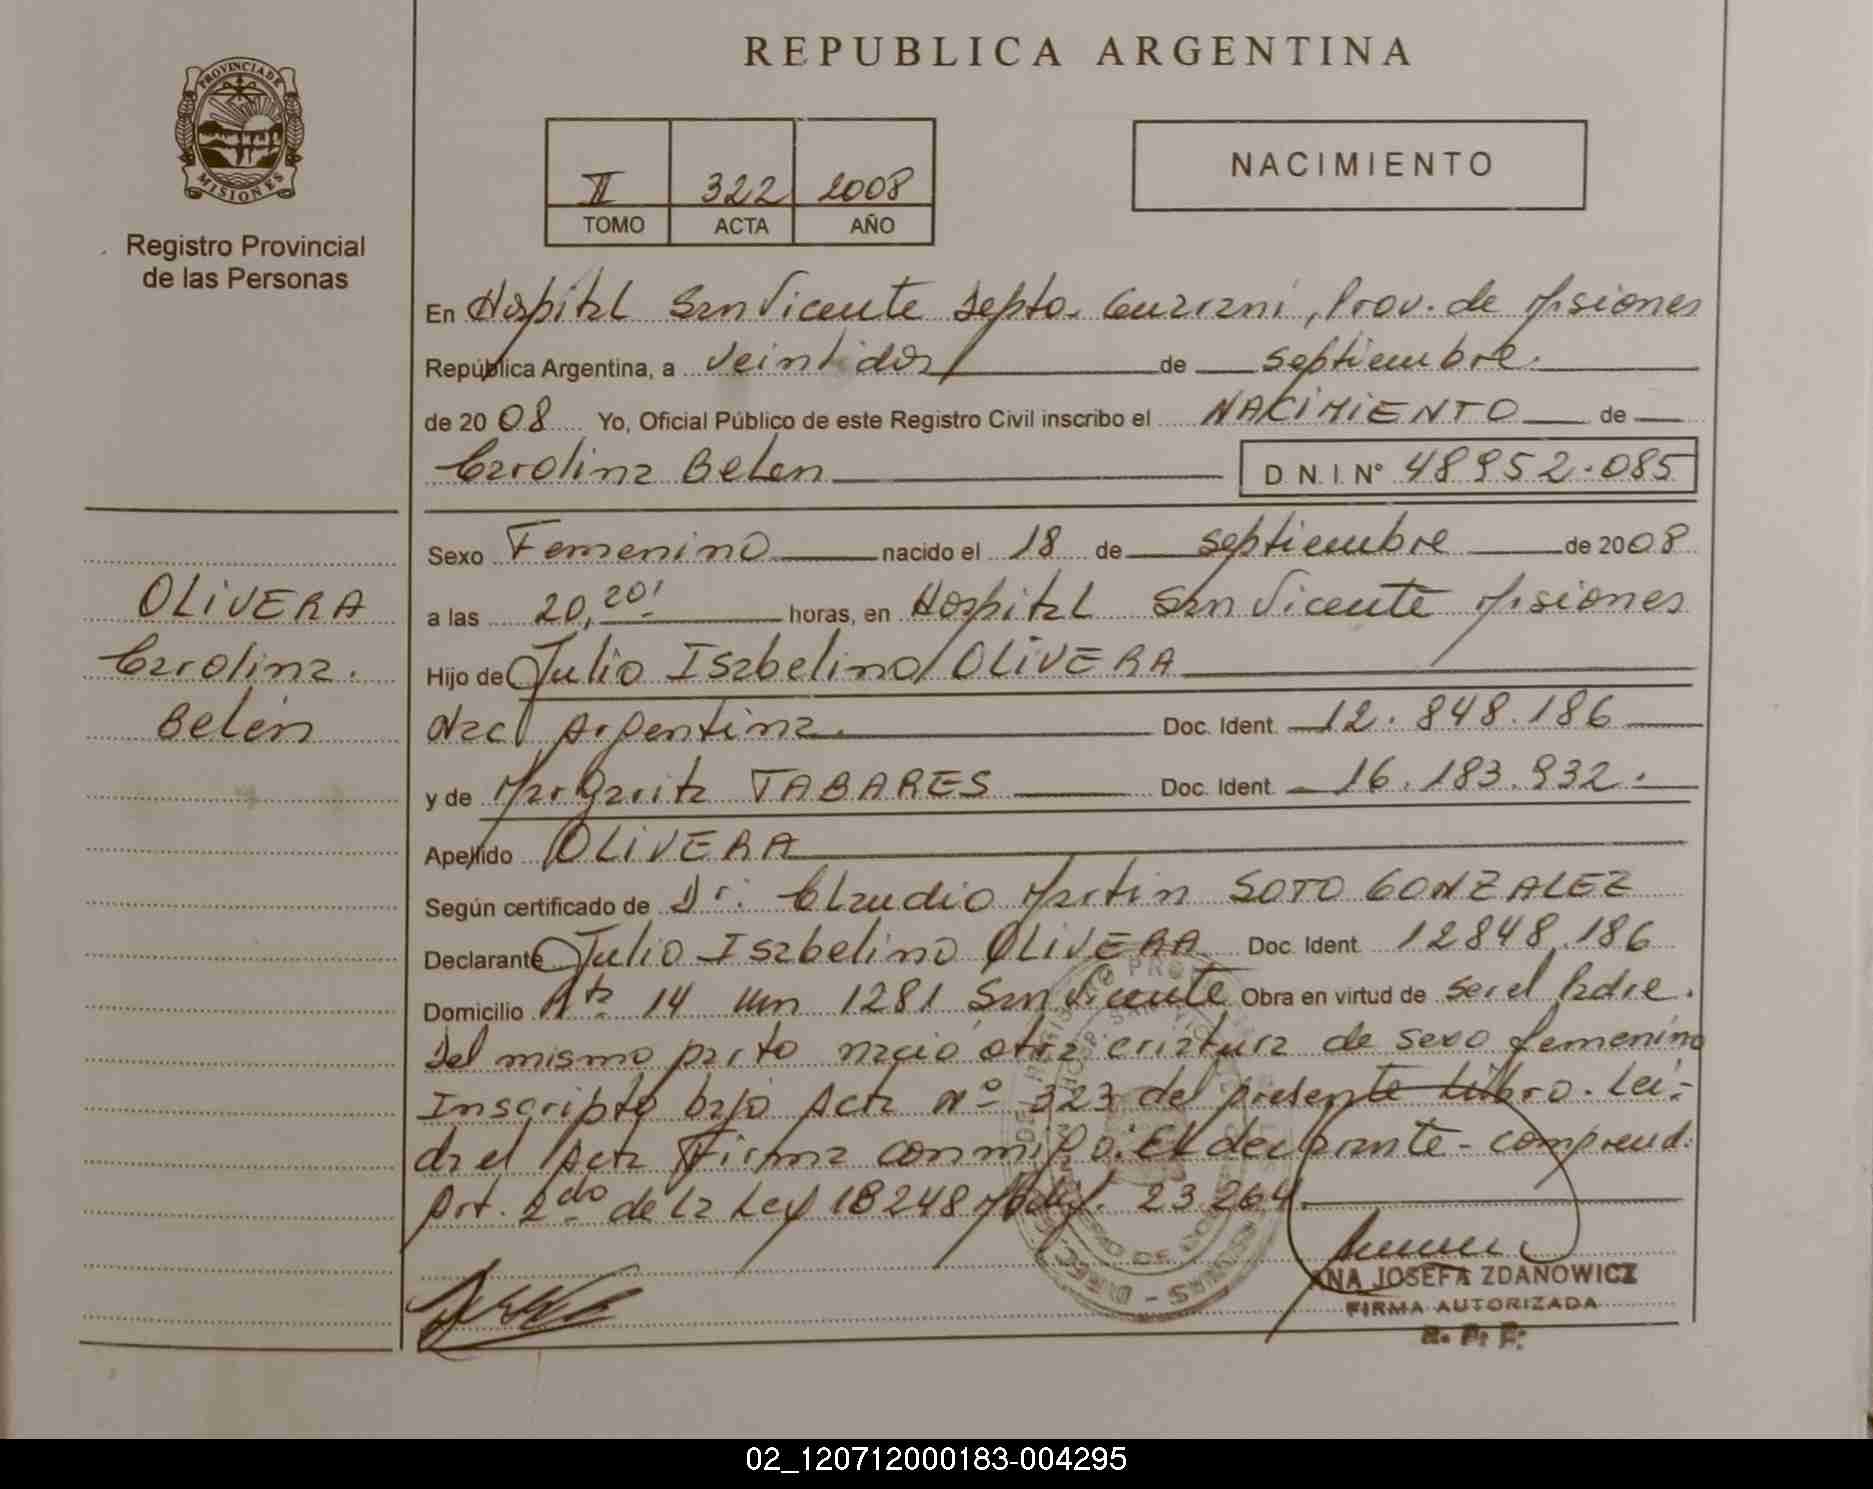 REPUBLICA ARGENTINA
PROVINCIA DE
MISIONES
Registro Provincial
de las Personas
II 322 2008
TOMO ACTA AÑO
NACIMIENTO
En Hospital San Vicente Depto. Guarani, Prov. de Misiones
República Argentina, a veintidos de septiembre.
de 2008 Yo, Oficial Público de este Registro Civil inscribo el NACIMIENTO de
Carolina Belen D N. I. N° 48952.085
Sexo Femenino nacido el 18 de septiembre de 2008
a las 20,20' horas, en Hospital San Vicente Misiones
Hijo de Julio Isabelino OLIVERA
Nacl Argentina. Doc. Ident. 12.848.186
y de Margarita TABARES Doc. Ident. 16.183.932.
Apellido OLIVERA
Según certificado de Dr: Claudio Martin SOTO GONZALEZ
Declarante Julio Isabelino OLIVERA Doc. Ident. 12848.186
Domicilio Rta 14 km 1281 San Vicente Obra en virtud de ser el Padre.
Del mismo parto nació otra criatura de sexo femenino
Inscripto bajo Acta Nº 323 del presente Libro. Lei-
da el Acta Firma conmigo: El declarante - comprend.
Art. 2do de la Ley 18248 Modif. 23264.
OLIVERA
Carolina.
Belén
ANA JOSEFA ZDANOWICZ
FIRMA AUTORIZADA
R. P. P.
02_120712000183-004295